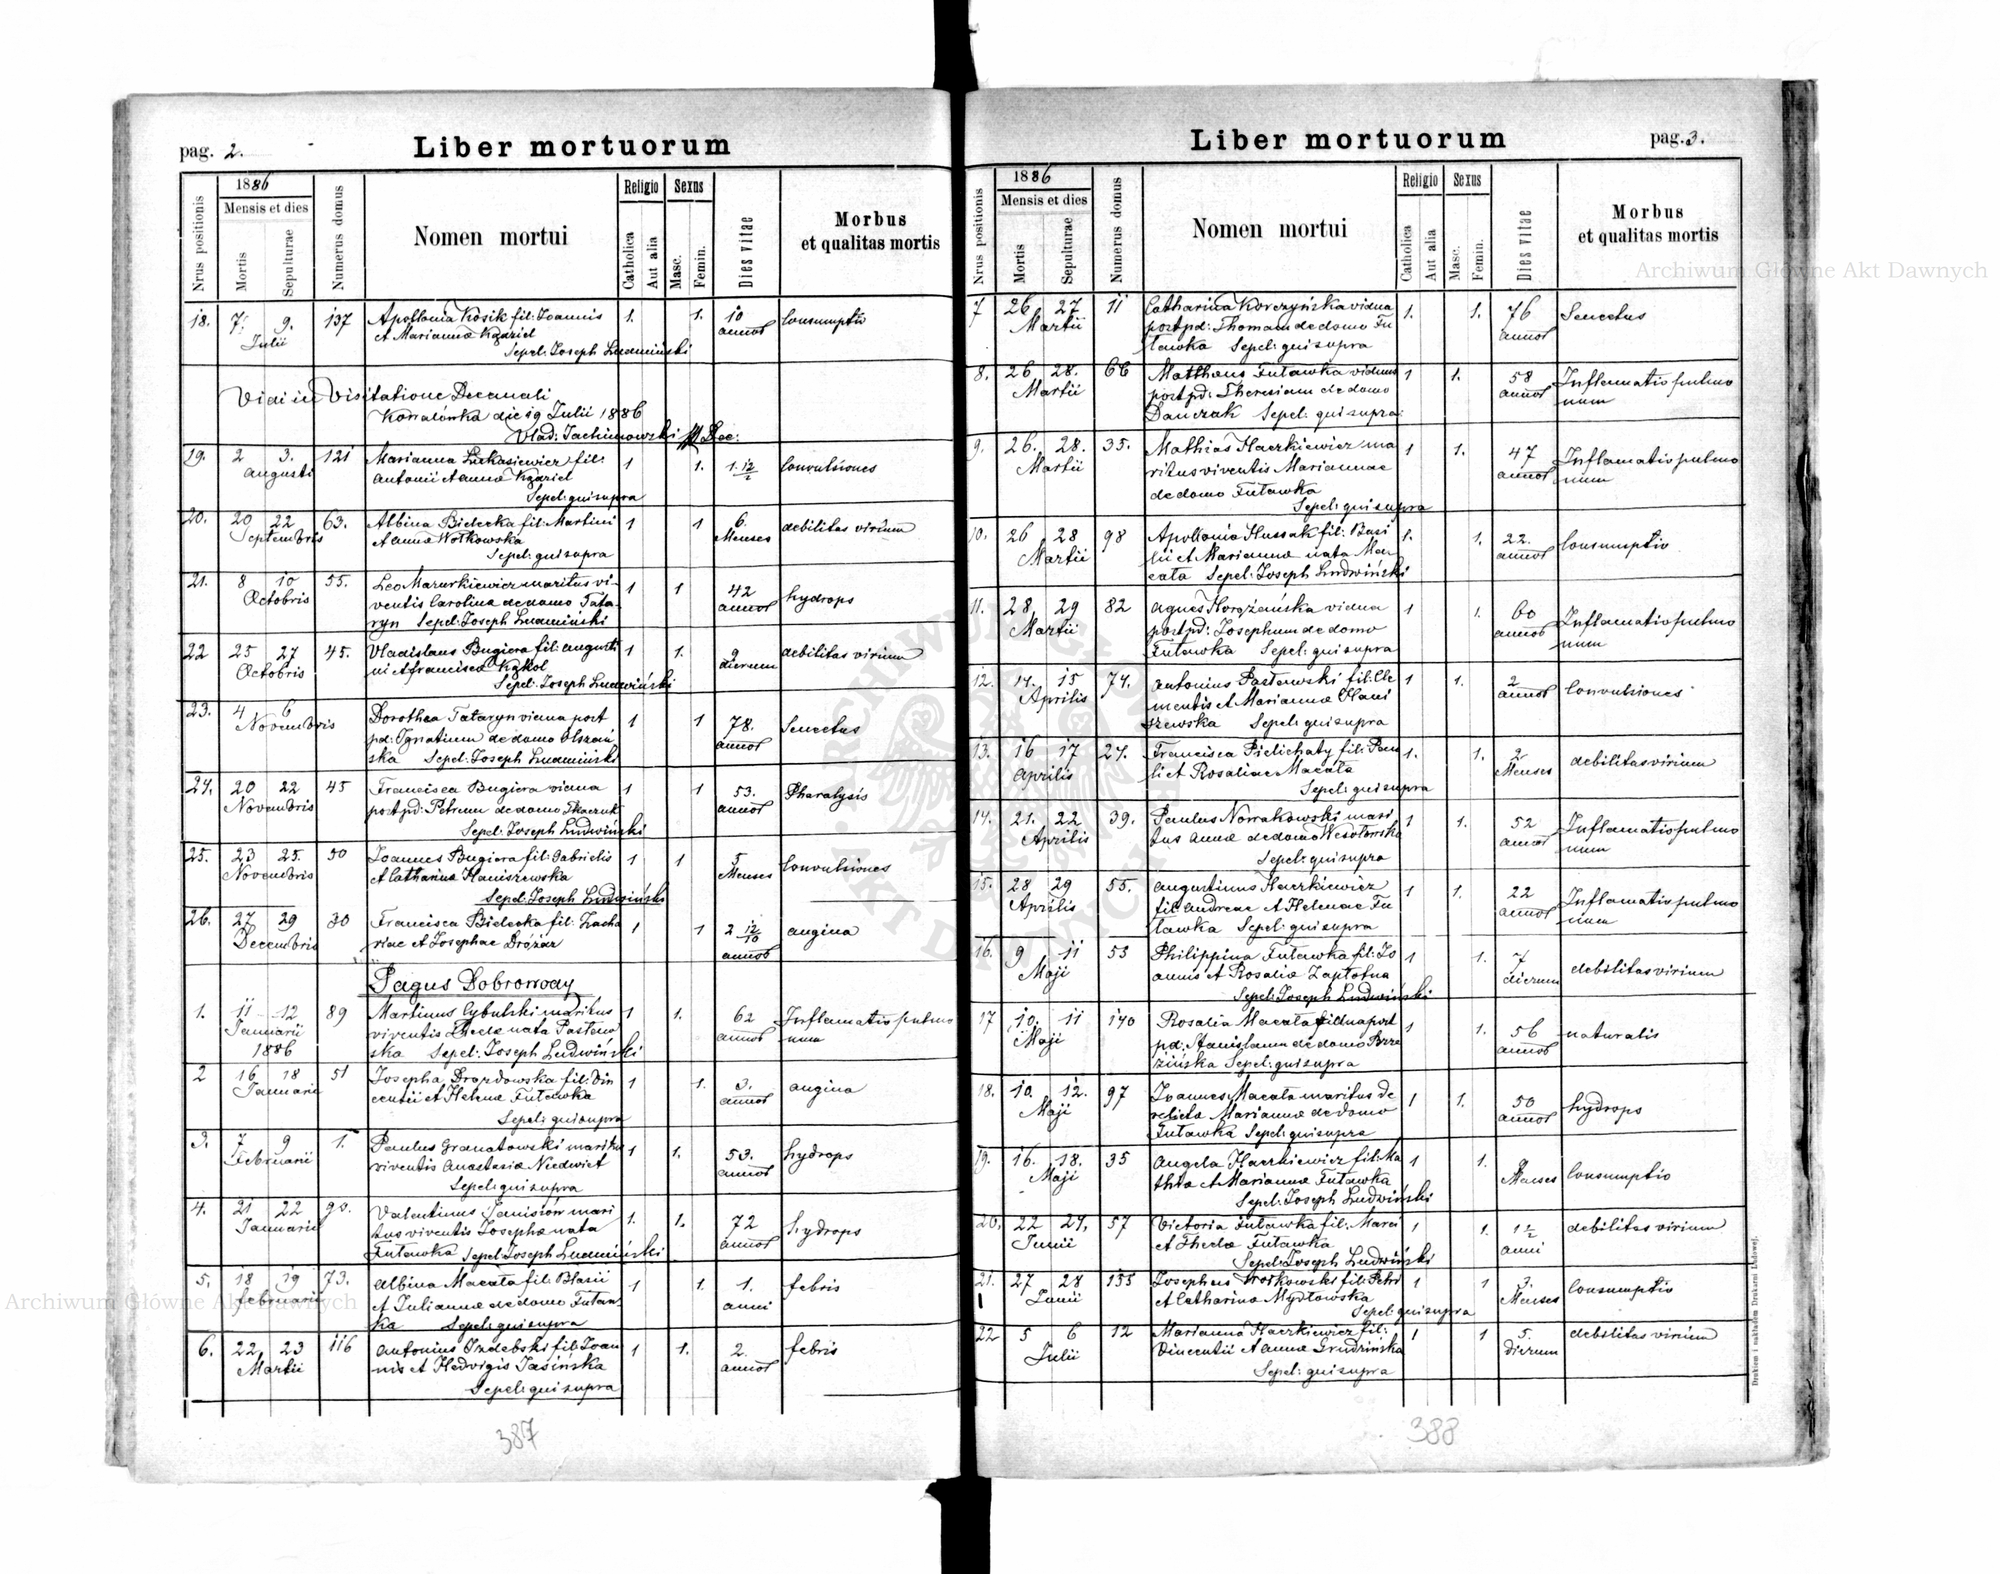 pag. 2.
Liber mortuorum
Nrus positionis
1886
Mensis et dies
Mortis
Sepulturae
Numerus domus
Nomen mortui
Religio
Catholica
Aut alia
Sexus
Masc.
Femin.
Dies vitae
Morbus
et qualitas mortis
18. 7. 9. 137 Apollonia Kosik fil: Joannis 1. 1. 10 Consumptio
Julii et Marianna Kądziel annor
Sepel: Joseph Ludwiński
Vidi in Visitatione Decanali
Korralówka die 19 Julii 1886
Vlad: Jachimowski Dec:
19. 2 3. 121 Marianna Łukasiewicz fil: 1 1. 1. 12/2 Convulsiones
Augusti Antonii et Anna Kądziel
Sepel: qui supra
20. 20 22 63. Albina Bielecka fil: Martini 1 1 6. debilitas virium
Septembris et Anna Wołkowska Menses
Sepel: qui supra
21. 8 10 55. Leo Mazurkiewicz maritus vi- 1 1 42 hydrops
Octobris ventis Carolina de domo Tata- annor
ryn Sepel: Joseph Ludwiński
22 25 27 45. Vladislaus Bugiera fil: Augusti 1 1. 9 debilitas virium
Octobris ni et Francisca Kąkol dierum
Sepel: Joseph Ludwiński
23. 4 6 Dorothea Tataryn vidua post 1 1 78. Senectus
Novembris pd: Ignatium de domo Olszań annor
ska Sepel: Joseph Ludwiński
24. 20 22 45 Francisca Bugiera vidua 1 1 53. Pharalysis
Novembris post pd: Petrum de domo Tkaczuk annor
Sepel: Joseph Ludwiński
25. 23 25. 50 Joannes Bugiera fil: Gabrielis 1 1 5 Convulsiones
Novembris et Catharina Haniszewska Menses
Sepel: Joseph Ludwiński
26. 27 29 30 Francisca Bielecka fil: Zacha 1 1 2 12/10 angina
Decembris riae et Josephae Dróżdż annor
Pagus Dobrowody
1. 11 12 89 Martinus Cybulski maritus 1 1. 62 Inflamatio pulmo
Januarii viventis Thecla nata Pastew annor num
1886 ska Sepel: Joseph Ludwiński
2 16 18 51 Josepha Drozdowska fil: Vin 1 1. 3. angina
Januarii centii et Helena Futawka annor
Sepel: qui supra
3. 7 9 1. Paulus Granatowski maritus 1 1. 53. hydrops
Februarii viventis Anastasia Niedwiet annor
Sepel: qui supra
4. 21 22 90. Valentinus Janisiów mari 1. 1. 72 hydrops
Januarii tus viventis Josepha nata annor
Futawka Sepel: Joseph Ludwiński
5. 18 19 73. Albina Macała fil: Blasii 1 1. 1. febris
februarii et Julianna de domo Futaw- anni
ka Sepel: qui supra
6. 22 23 116 Antonius Izdebski fil: Joan 1 1. 2. febris
Martii nis et Hedvigis Jasińska annor
Sepel: qui supra
387
Liber mortuorum
pag. 3.
Nrus positionis
1886
Mensis et dies
Mortis
Sepulturae
Numerus domus
Nomen mortui
Religio
Catholica
Aut alia
Sexus
Masc.
Femin.
Dies vitae
Morbus
et qualitas mortis
7 26 27 11 Catharina Korczyńska vidua 1. 1. 76 Senectus
Martii post pd: Thomam de domo Fu annor
tawka Sepel: qui supra
8. 26 28. 66 Mathaeus Futawka viduus 1 1. 58 Inflamatio pulmo
Martii post pd: Theresiam de domo annor num
Dańczak Sepel: qui supra
9. 26. 28. 35. Mathias Haczkiewicz ma 1 1. 47 Inflamatio pulmo
Martii ritus viventis Mariannae annor num
de domo Futawka
Sepel: qui supra
10. 26 28 98 Apollonia Hussak fil: Basi 1. 1. 22. Consumptio
Martii lii et Marianna nata Ma- annor
cała Sepel: Joseph Ludwiński
11. 28 29 82 Agnes Horożańska vidua 1 1. 60 Inflamatio pulmo
Martii post pd: Josephum de domo annor num
Futawka Sepel: qui supra
12. 14. 15 74. Antonius Pastewski fil: Cle 1 1. 2 Convulsiones
Aprilis mentis et Marianna Hani annor
szewska Sepel: qui supra
13. 16 17 24. Francisca Pielichaty fil: Pau 1. 1. 2 debilitas virium
Aprilis li et Rosaliae Macała Menses
Sepel: qui supra
14. 21. 22 39. Paulus Nowakowski mari 1 1. 52 Inflamatio pulmo
Aprilis tus Anna de domo Wesołowska annor num
Sepel: qui supra
15. 28 29 55. Augustinus Haczkiewicz 1 1. 22 Inflamatio pulmo
Aprilis fil: Andreae et Helenae Fu annor num
tawka Sepel: qui supra
16. 9 11 53 Philippina Futawka fil: Jo 1 1. 7 debilitas virium
Maji annis et Rosalia Zapłotna dierum
Sepel: Joseph Ludwiński
17 10. 11 140 Rosalia Macała vidua post 1 1. 56 naturalis
Maji pd: Stanislaum de domo Brze annor
zińska Sepel: qui supra
18. 10. 12. 97 Joannes Macała maritus de 1 1. 50 hydrops
Maji relicta Marianna de domo annor
Futawka Sepel: qui supra
19. 16. 18. 35 Angela Haczkiewicz fil: Ma 1 1. Menses Consumptio
Maji thia et Marianna Futawka
Sepel: Joseph Ludwiński
20. 22 24. 57 Victoria Futawka fil: Marci 1 1. 1 1/2 debilitas virium
Junii et Thecla Futawka anni
Sepel: Joseph Ludwiński
21. 27 28 155 Josephus Wołkowski fil: Petri 1 1 3. Consumptio
Junii et Catharina Mydłowska Menses
Sepel: qui supra
22 5 6 12 Marianna Haczkiewicz fil: 1 1 5. debilitas virium
Julii Vincentii et Anna Grudzińska dierum
Sepel: qui supra
Drukiem i nakładem Drukarni Ludowej.
388
Archiwum Główne Akt Dawnych
Archiwum Główne Akt Dawnych
ARCHIWUM GŁÓWNE AKT DAWNYCH